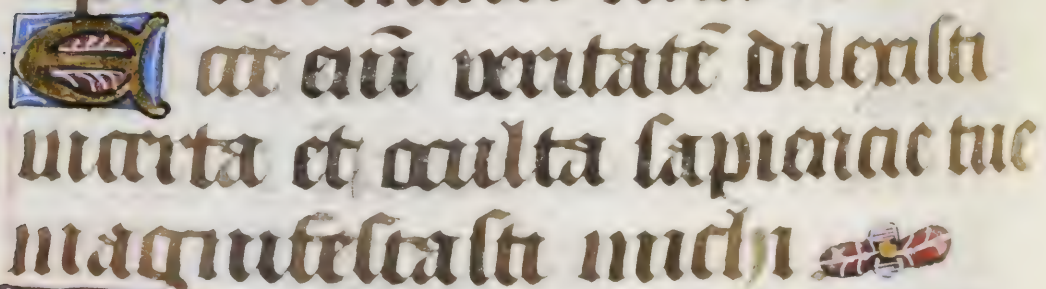 Ecce eni̅ veritate̅ dilexisti
incerta et occulta sapiencie tue
magnifestasti michi